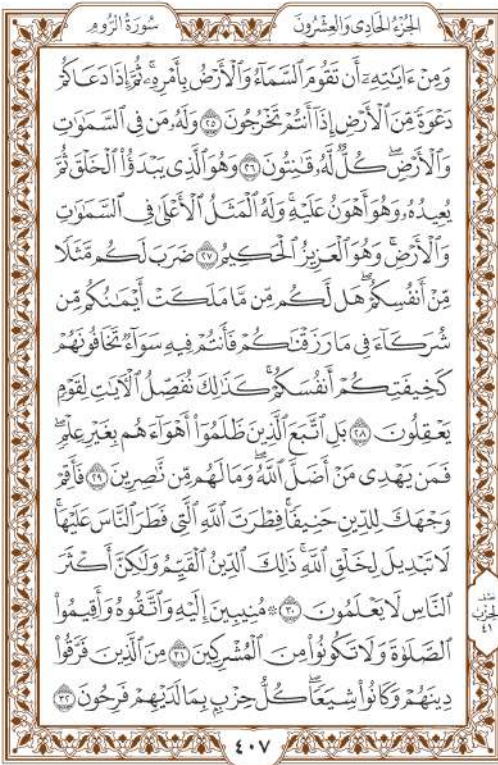 الجُزْءُ الحَادِى وَالعِشْرُونَ
سُورَةُ الرُّومِ
وَمِنْ ءَايَٰتِهِۦٓ أَن تَقُومَ ٱلسَّمَآءُ وَٱلْأَرْضُ بِأَمْرِهِۦۚ ثُمَّ إِذَا دَعَاكُمْ
دَعْوَةً مِّنَ ٱلْأَرْضِ إِذَآ أَنتُمْ تَخْرُجُونَ ٢٥ وَلَهُۥ مَن فِى ٱلسَّمَٰوَٰتِ
وَٱلْأَرْضِۖ كُلٌّ لَّهُۥ قَٰنِتُونَ ٢٦ وَهُوَ ٱلَّذِى يَبْدَؤُا۟ ٱلْخَلْقَ ثُمَّ
يُعِيدُهُۥ وَهُوَ أَهْوَنُ عَلَيْهِۚ وَلَهُ ٱلْمَثَلُ ٱلْأَعْلَىٰ فِى ٱلسَّمَٰوَٰتِ
وَٱلْأَرْضِۚ وَهُوَ ٱلْعَزِيزُ ٱلْحَكِيمُ ٢٧ ضَرَبَ لَكُم مَّثَلًا
مِّنْ أَنفُسِكُمْۖ هَل لَّكُم مِّن مَّا مَلَكَتْ أَيْمَٰنُكُم مِّن
شُرَكَآءَ فِى مَا رَزَقْنَٰكُمْ فَأَنتُمْ فِيهِ سَوَآءٌ تَخَافُونَهُمْ
كَخِيفَتِكُمْ أَنفُسَكُمْۚ كَذَٰلِكَ نُفَصِّلُ ٱلْءَايَٰتِ لِقَوْمٍ
يَعْقِلُونَ ٢٨ بَلِ ٱتَّبَعَ ٱلَّذِينَ ظَلَمُوٓا۟ أَهْوَآءَهُم بِغَيْرِ عِلْمٍۖ
فَمَن يَهْدِى مَنْ أَضَلَّ ٱللَّهُۖ وَمَا لَهُم مِّن نَّٰصِرِينَ ٢٩ فَأَقِمْ
وَجْهَكَ لِلدِّينِ حَنِيفًاۚ فِطْرَتَ ٱللَّهِ ٱلَّتِى فَطَرَ ٱلنَّاسَ عَلَيْهَاۚ
لَا تَبْدِيلَ لِخَلْقِ ٱللَّهِۚ ذَٰلِكَ ٱلدِّينُ ٱلْقَيِّمُ وَلَٰكِنَّ أَكْثَرَ
ٱلنَّاسِ لَا يَعْلَمُونَ ٣٠ ۞ مُنِيبِينَ إِلَيْهِ وَٱتَّقُوهُ وَأَقِيمُوا۟
ٱلصَّلَوٰةَ وَلَا تَكُونُوا۟ مِنَ ٱلْمُشْرِكِينَ ٣١ مِنَ ٱلَّذِينَ فَرَّقُوا۟
دِينَهُمْ وَكَانُوا۟ شِيَعًاۖ كُلُّ حِزْبٍۭ بِمَا لَدَيْهِمْ فَرِحُونَ ٣٢
نصف
الحزب
٤١
٤٠٧